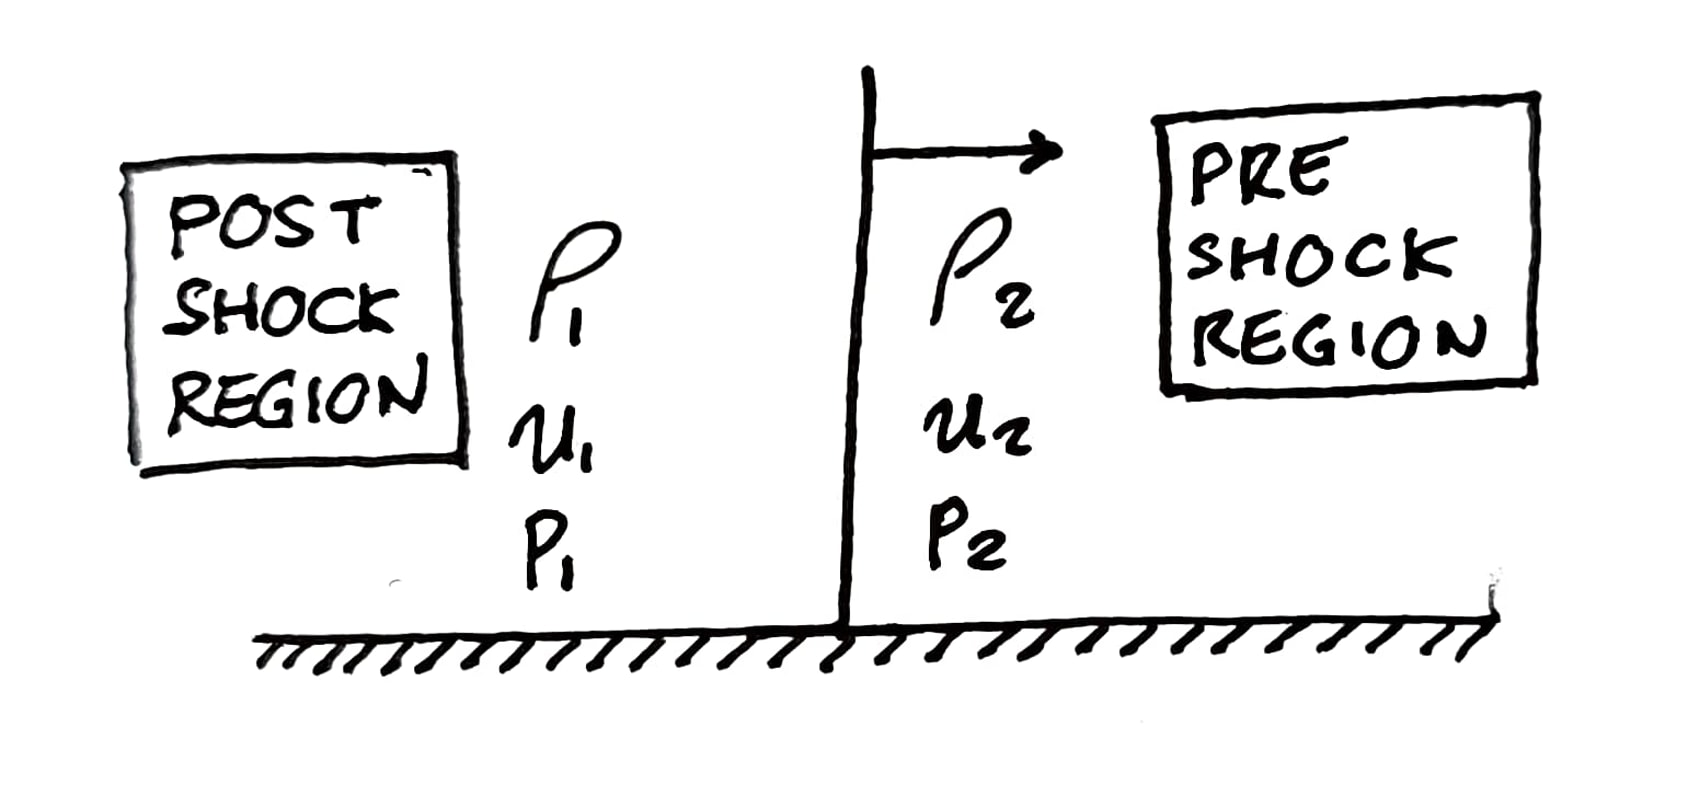 POST
SHOCK
REGION
ρ₁
u₁
P₁
ρ₂
u₂
P₂
PRE
SHOCK
REGION